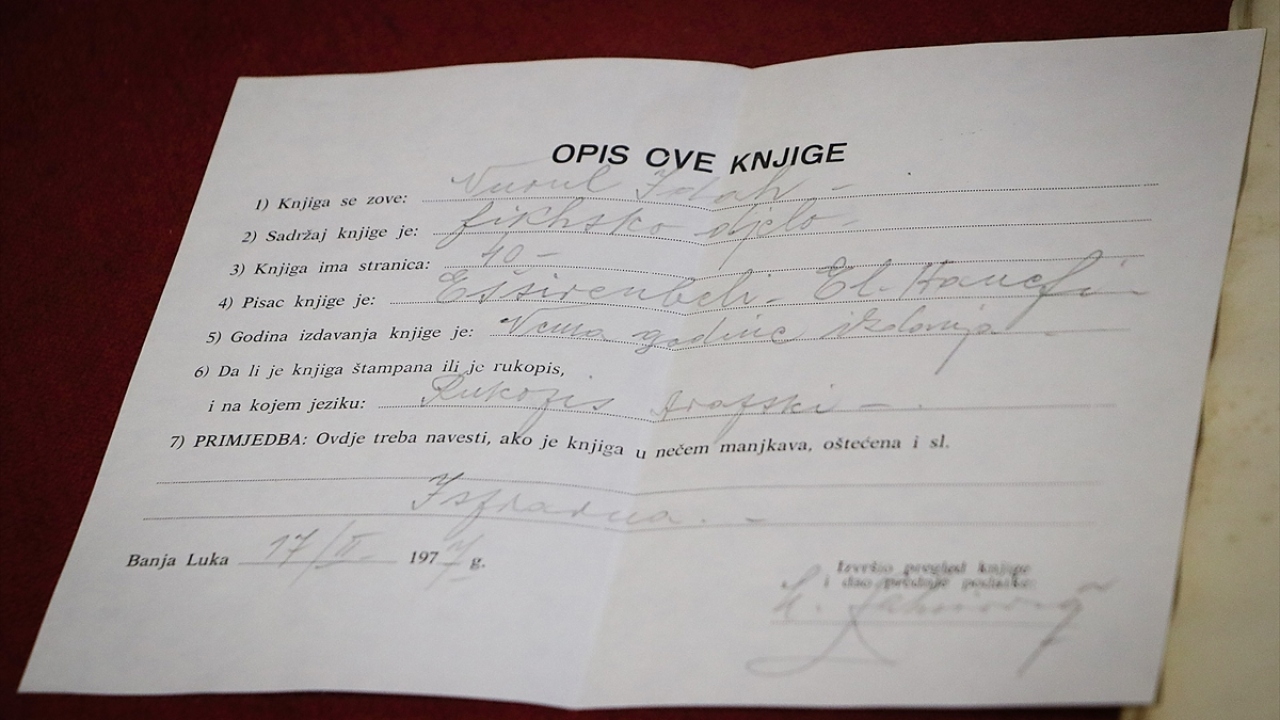 OPIS OVE KNJIGE
1) Knjiga se zove: Nurul Izah -
2) Sadržaj knjige je: fikhsko djelo -
3) Knjiga ima stranica: 40 -
4) Pisac knjige je: Eššurenbeli - El. Hanefi -
5) Godina izdavanja knjige je: Nema godine izdanja -
6) Da li je knjiga štampana ili je rukopis,
i na kojem jeziku: Rukopis Arapski - .
7) PRIMJEDBA: Ovdje treba navesti, ako je knjiga u nečem manjkava, oštećena i sl.
Ispravna. -
Banja Luka 17/II- 197 g.
Izvršio pregled knjige
i dao prednje podatke: